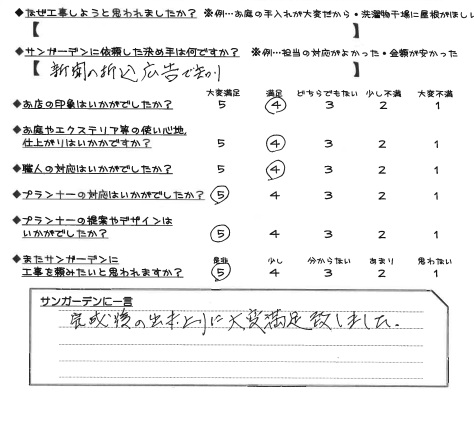 ◆なぜ工事しようと思われましたか？ ※例…お庭の手入れが大変だから・洗濯物干場に屋根がほしい
【 】
◆サンガーデンに依頼した決め手は何ですか？ ※例…担当の対応がよかった・金額が安かった
【 新聞の折込広告で知り 】
大変満足 満足 どちらでもない 少し不満 大変不満
◆お店の印象はいかがでしたか？ 5 4 3 2 1
◆お庭やエクステリア等の使い心地、
仕上がりはいかがですか？ 5 4 3 2 1
◆職人の対応はいかがでしたか？ 5 4 3 2 1
◆プランナーの対応はいかがでしたか？ 5 4 3 2 1
◆プランナーの提案やデザインは
いかがでしたか？ 5 4 3 2 1
◆またサンガーデンに 是非 少し 分からない あまり 思わない
工事を頼みたいと思われますか？ 5 4 3 2 1
サンガーデンに一言
完成後の出来上りに大変満足致しました。